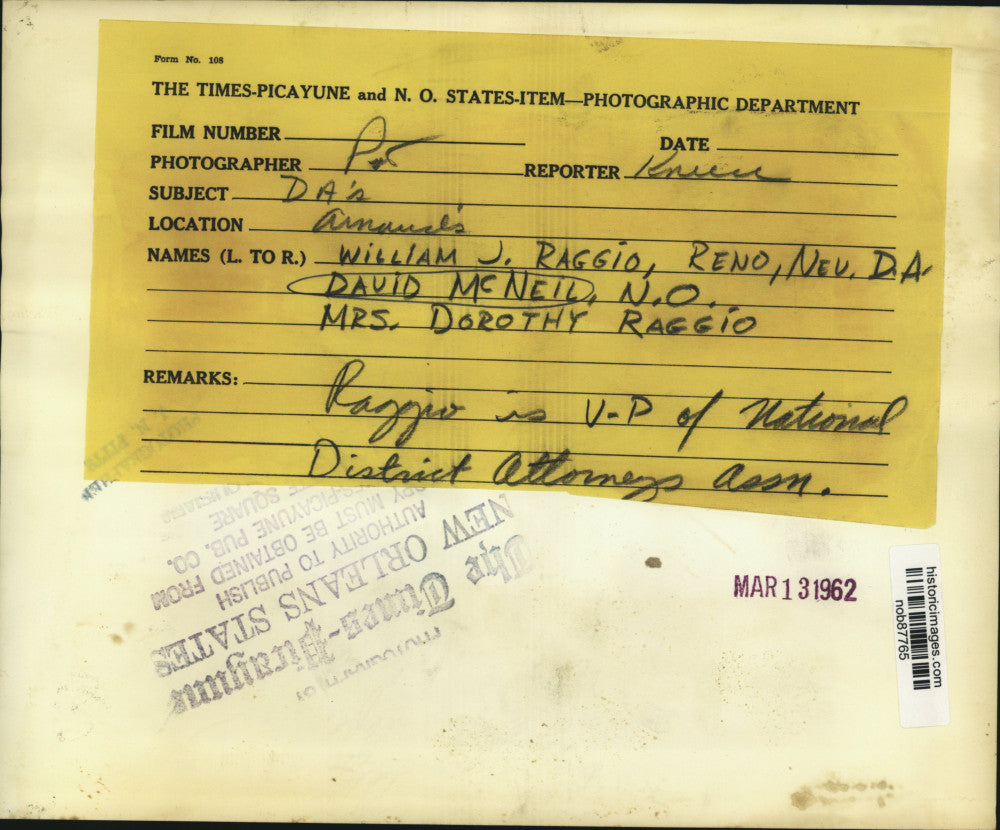 Form No. 108
THE TIMES-PICAYUNE and N. O. STATES-ITEM—PHOTOGRAPHIC DEPARTMENT
FILM NUMBER
DATE
PHOTOGRAPHER
REPORTER
SUBJECT DA's
LOCATION Arnaud's
NAMES (L. TO R.) WILLIAM J. RAGGIO, RENO, NEV. D.A.
DAVID MCNEIL, N.O.
MRS. DOROTHY RAGGIO
REMARKS: Raggio is V-P of National
District Attorneys Assn.
MAR 13 1962
historicimages.com
nob87765
The Times-Picayune
NEW ORLEANS STATES
AUTHORITY TO PUBLISH
MUST BE OBTAINED FROM
PICAYUNE PUB. CO.
SQUARE